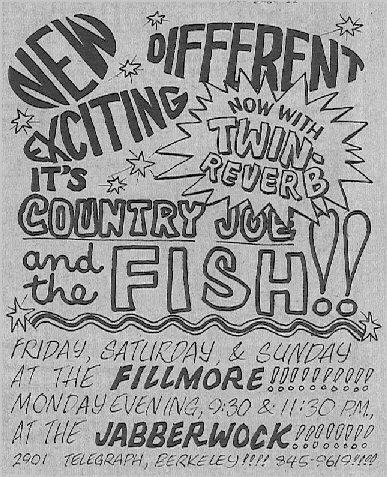 NEW
DIFFERENT
EXCITING
NOW WITH
TWIN-
REVERB
IT'S
COUNTRY JOE
and
the FISH!!
FRIDAY, SATURDAY, & SUNDAY
AT THE FILLMORE!!!!!!!!!!
MONDAY EVENING, 9:30 & 11:30 P.M.,
AT THE JABBERWOCK!!!!!!!!
2901 TELEGRAPH, BERKELEY!!!! 845-9619!!!!!